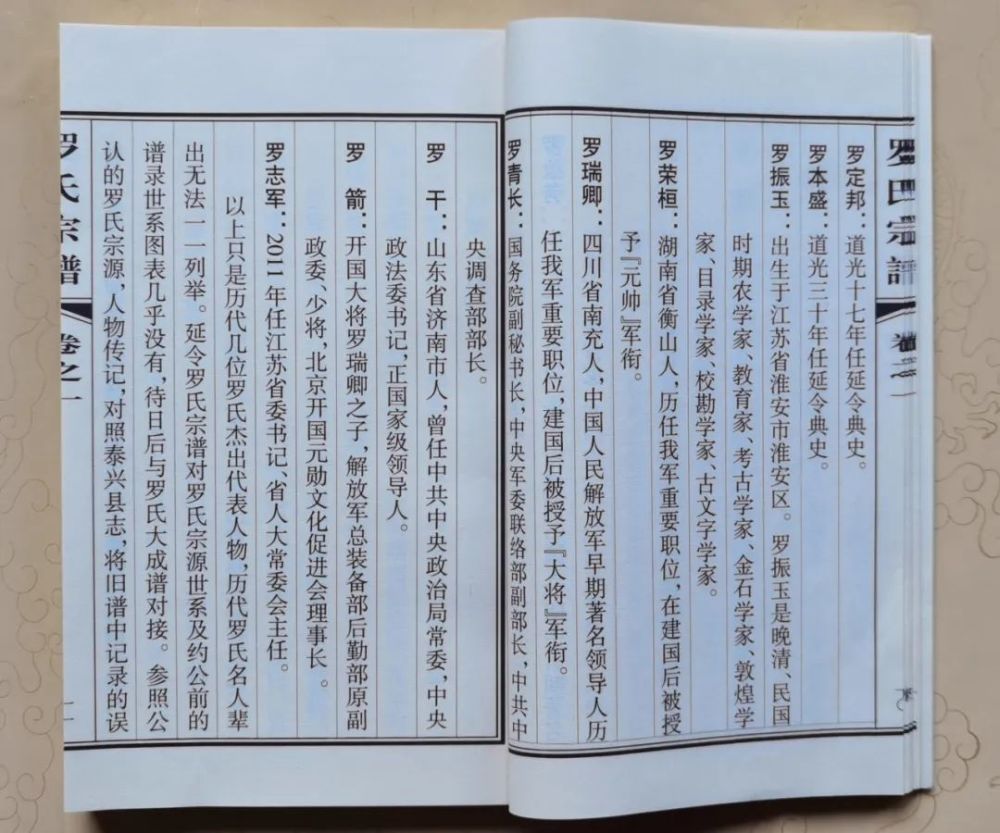 罗氏宗谱
罗定邦：道光十七年任延令典史。
罗本盛：道光三十年任延令典史。
罗振玉：出生于江苏省淮安市淮安区。罗振玉是晚清、民国
时期农学家、教育家、考古学家、金石学家、敦煌学
家、目录学家、校勘学家、古文字学家。
罗荣桓：湖南省衡山人，历任我军重要职位，在建国后被授
予『元帅』军衔。
罗瑞卿：四川省南充人，中国人民解放军早期著名领导人历
任我军重要职位，建国后被授予『大将』军衔。
罗青长：国务院副秘书长，中央军委联络部副部长，中共中
央调查部部长。
罗　干：山东省济南市人，曾任中共中央政治局常委，中央
政法委书记，正国家级领导人。
罗　箭：开国大将罗瑞卿之子，解放军总装备部后勤部原副
政委、少将，北京开国元勋文化促进会理事长。
罗志军：2011年任江苏省委书记、省人大常委会主任。
以上只是历代几位罗氏杰出代表人物，历代罗氏名人辈
出无法一一列举。延令罗氏宗谱对罗氏宗源世系及约公前的
谱录世系图表几乎没有，待日后与罗氏大成谱对接。参照公
认的罗氏宗源，人物传记，对照泰兴县志，将旧谱中记录的误
罗氏宗谱 卷之一